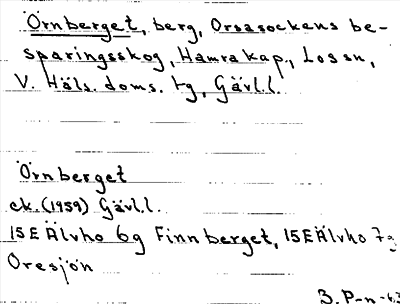 Örnberget, berg, Orsasockens be-
sparingsskog, Hamra kap., Los sn,
V. Häls. doms. tg, Gävl.l.
Örnberget
ek. (1959) Gävl.l.
15E Älvho 6g Finnberget, 15E Älvho 7g
Oresjön
B. P-n